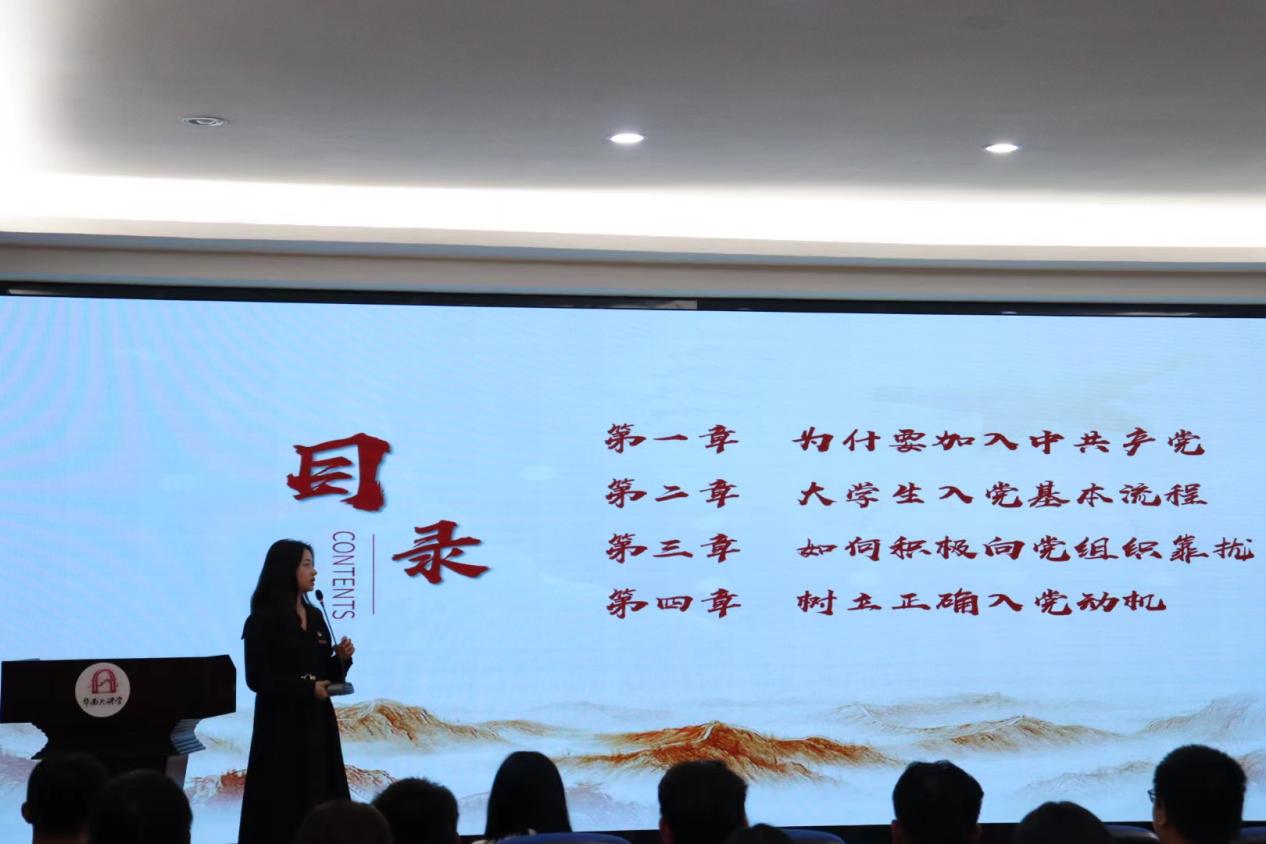 目录
CONTENTS
第一章 为什要加入中共产党
第二章 大学生入党基本流程
第三章 如何积极向党组织靠拢
第四章 树立正确入党动机
华南大讲堂